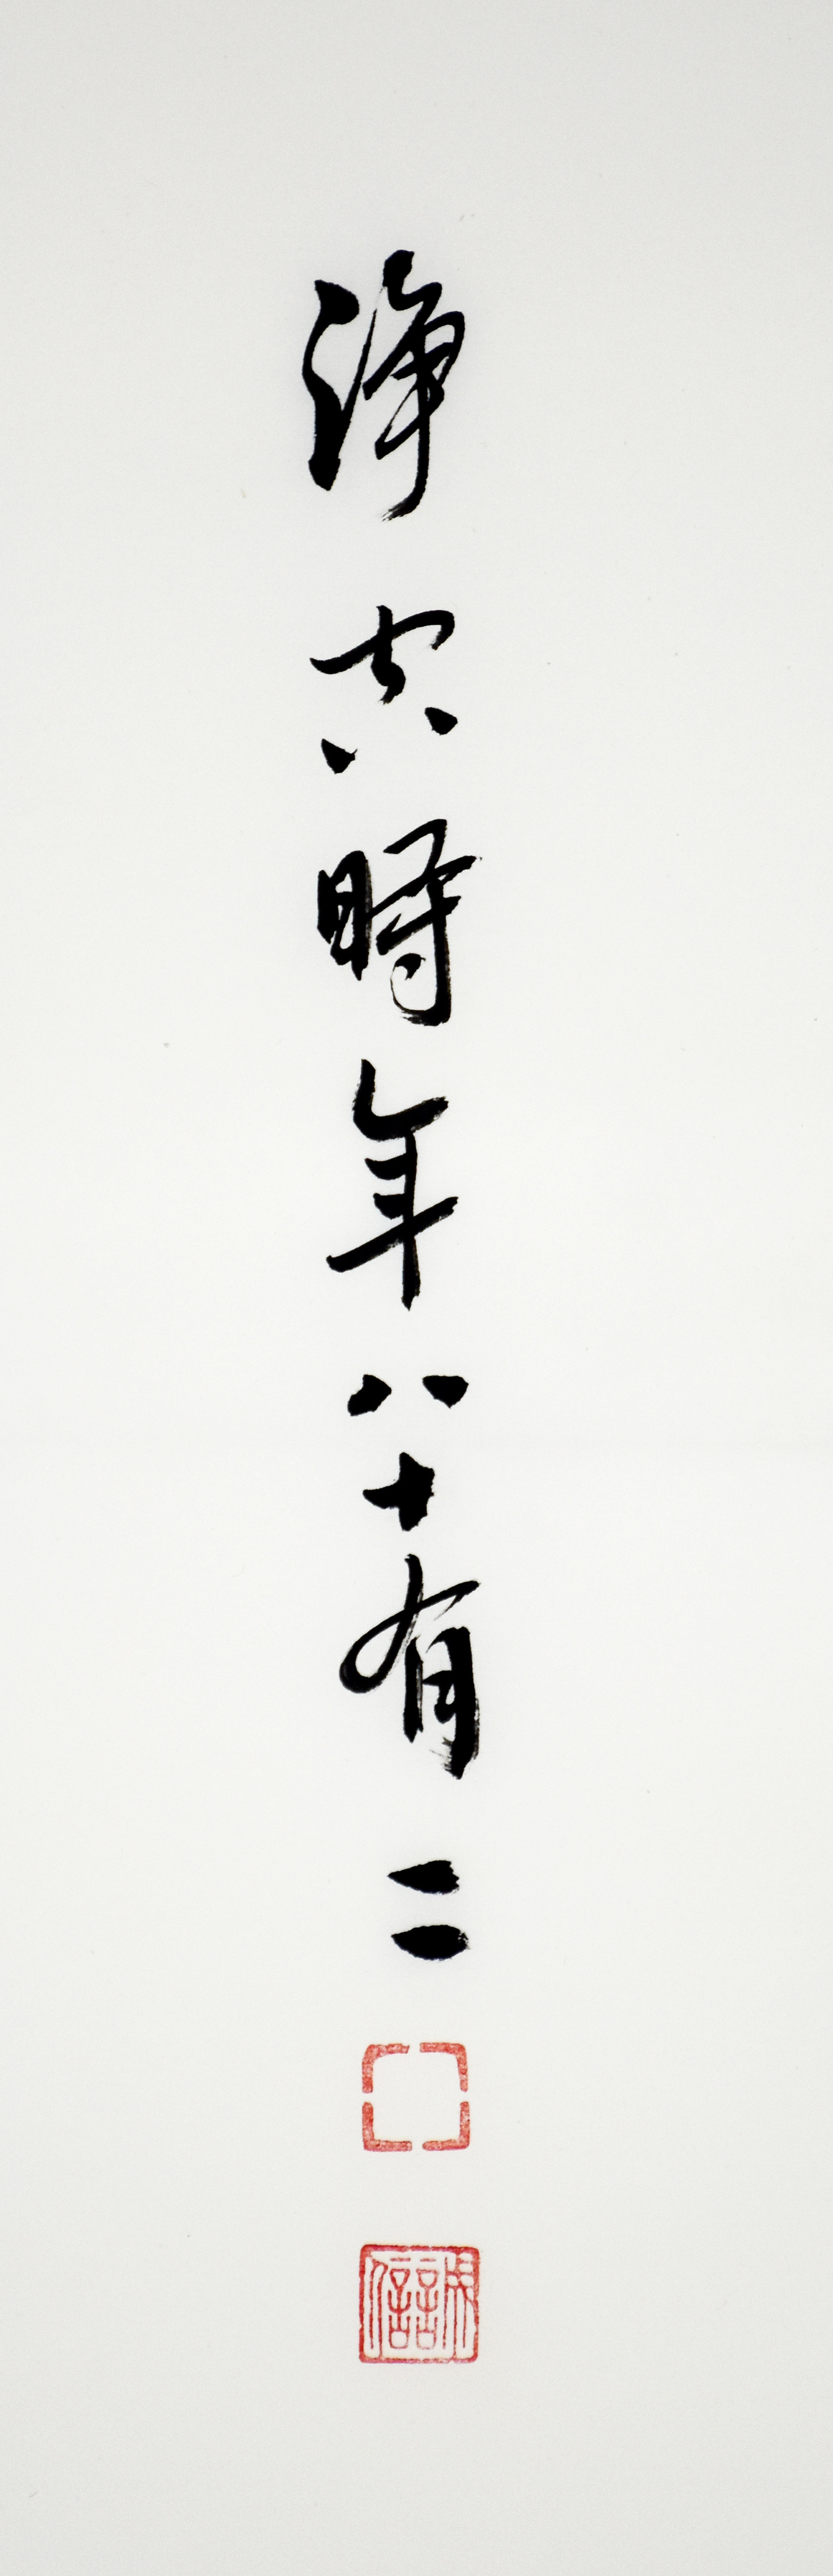 淨時年八十有二